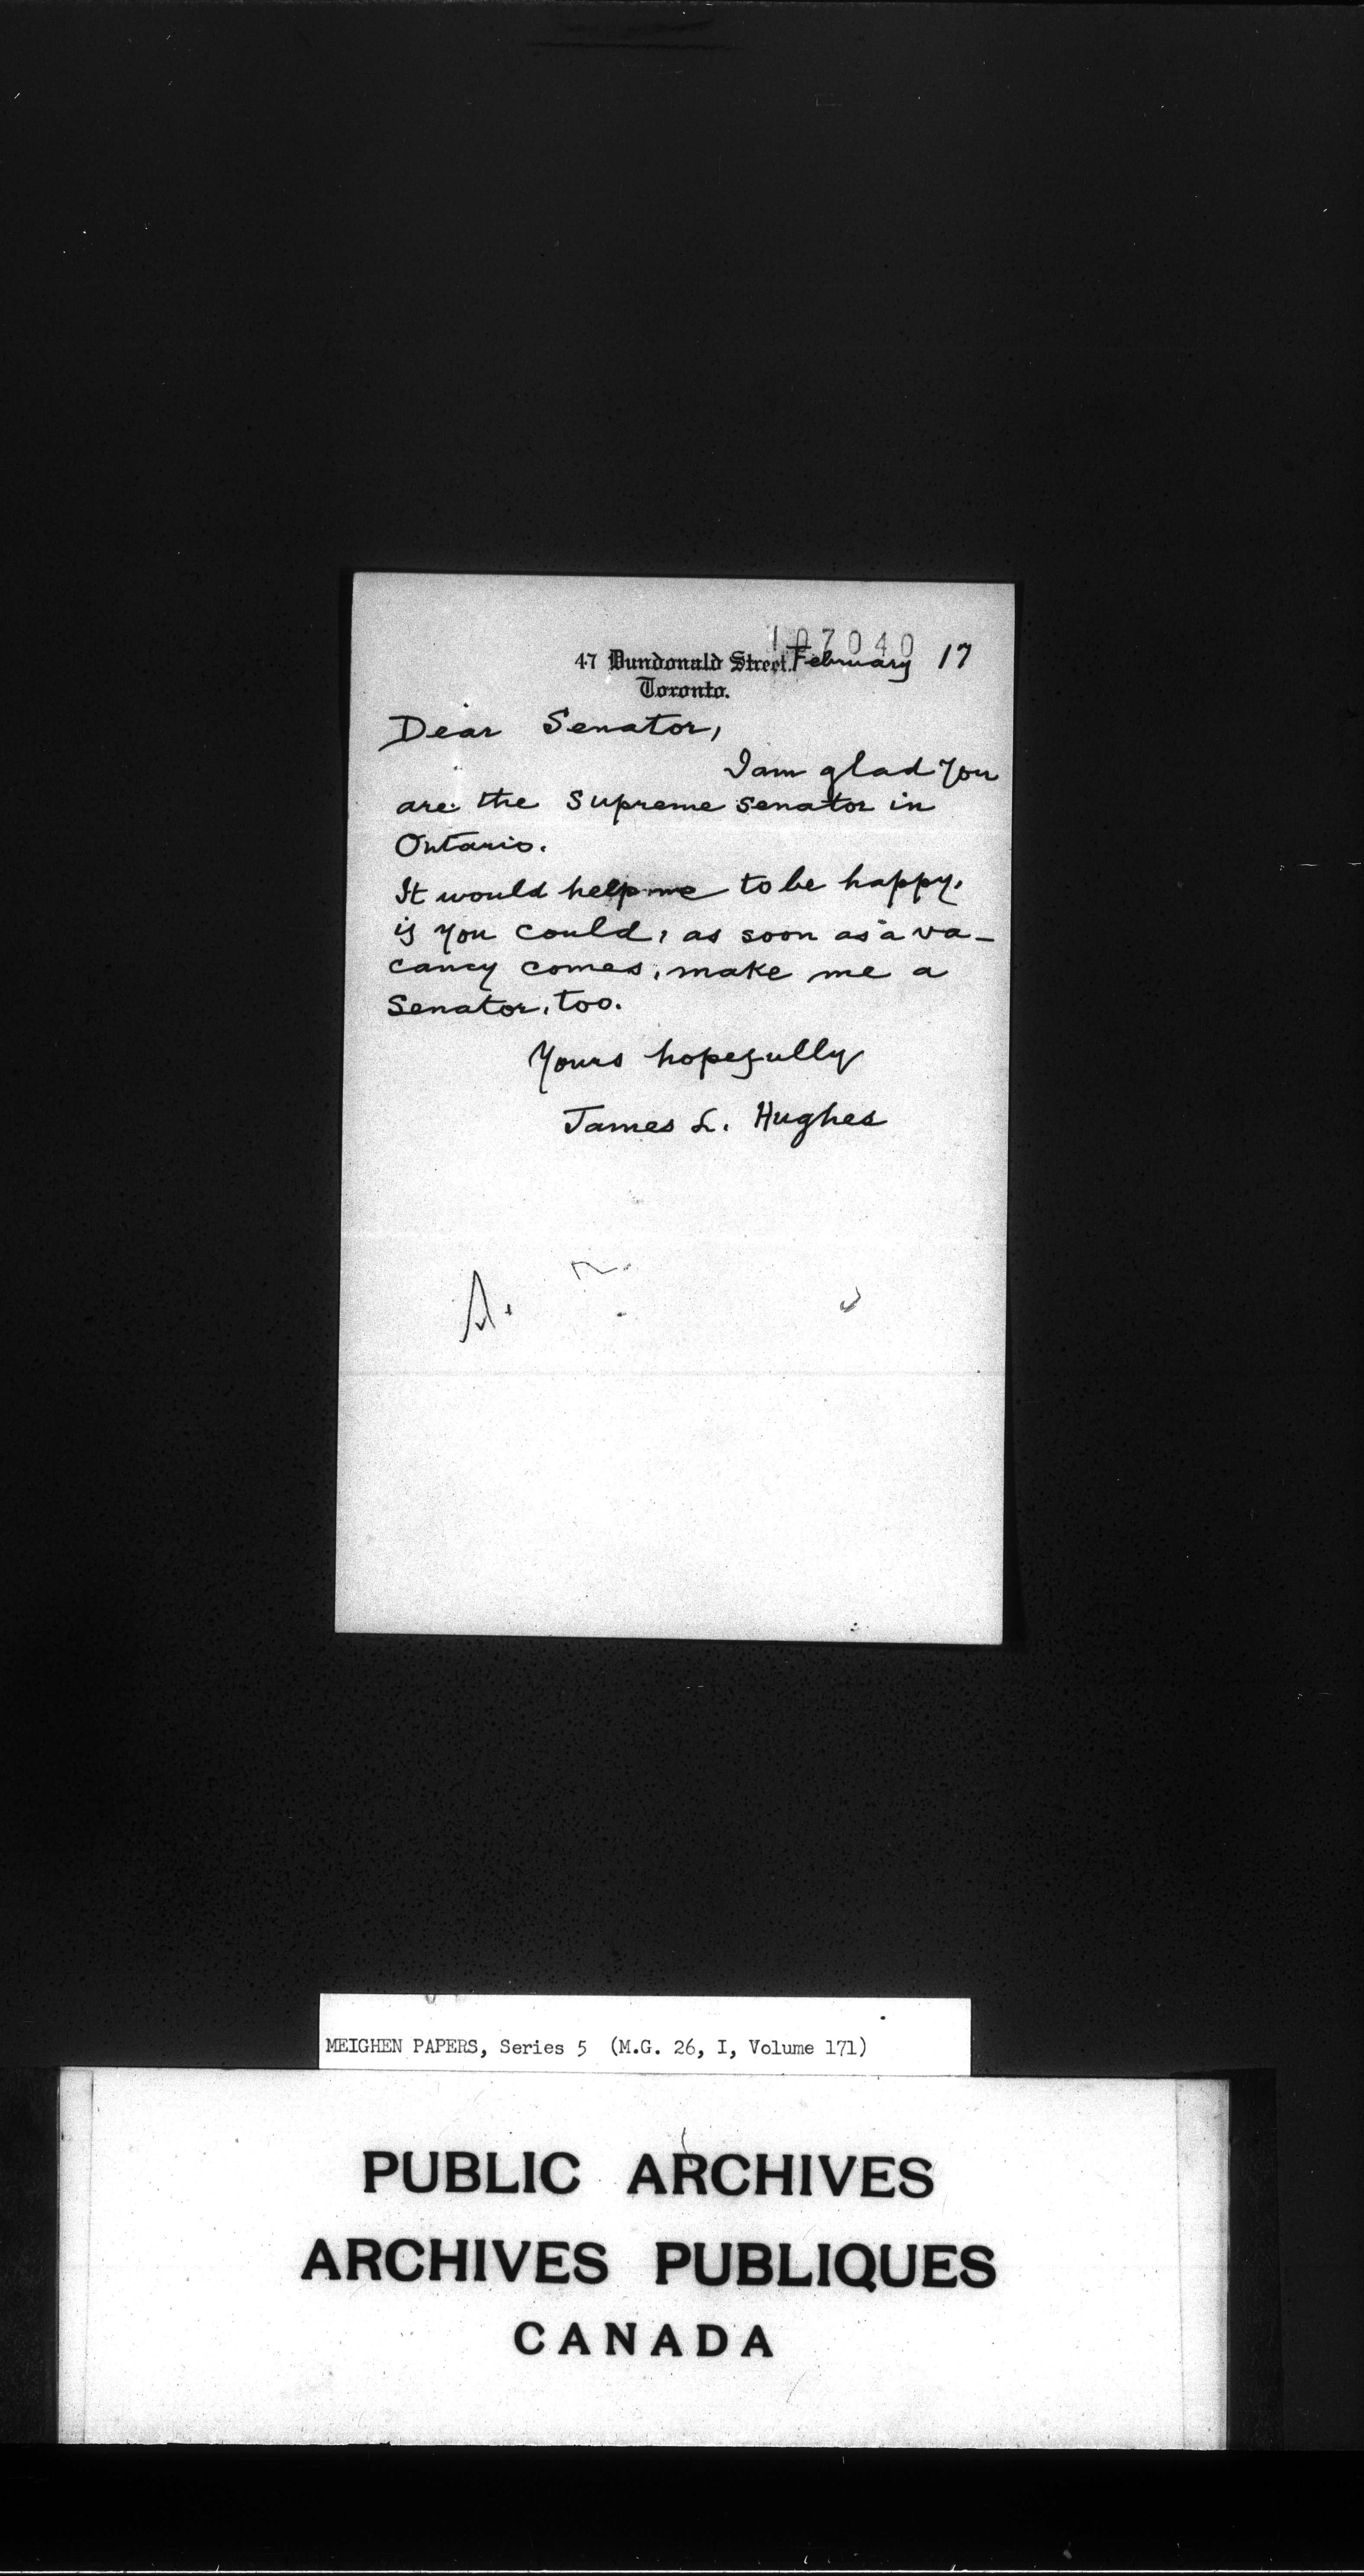 107040
47 Dundonald Street. February 17
Toronto.
Dear Senator,
I am glad you
are the Supreme senator in
Ontario.
It would help me to be happy,
if you could, as soon as a va-
cancy comes, make me a
Senator, too.
Yours hopefully
James L. Hughes
MEIGHEN PAPERS, Series 5 (M.G. 26, I, Volume 171)
PUBLIC ARCHIVES
ARCHIVES PUBLIQUES
CANADA